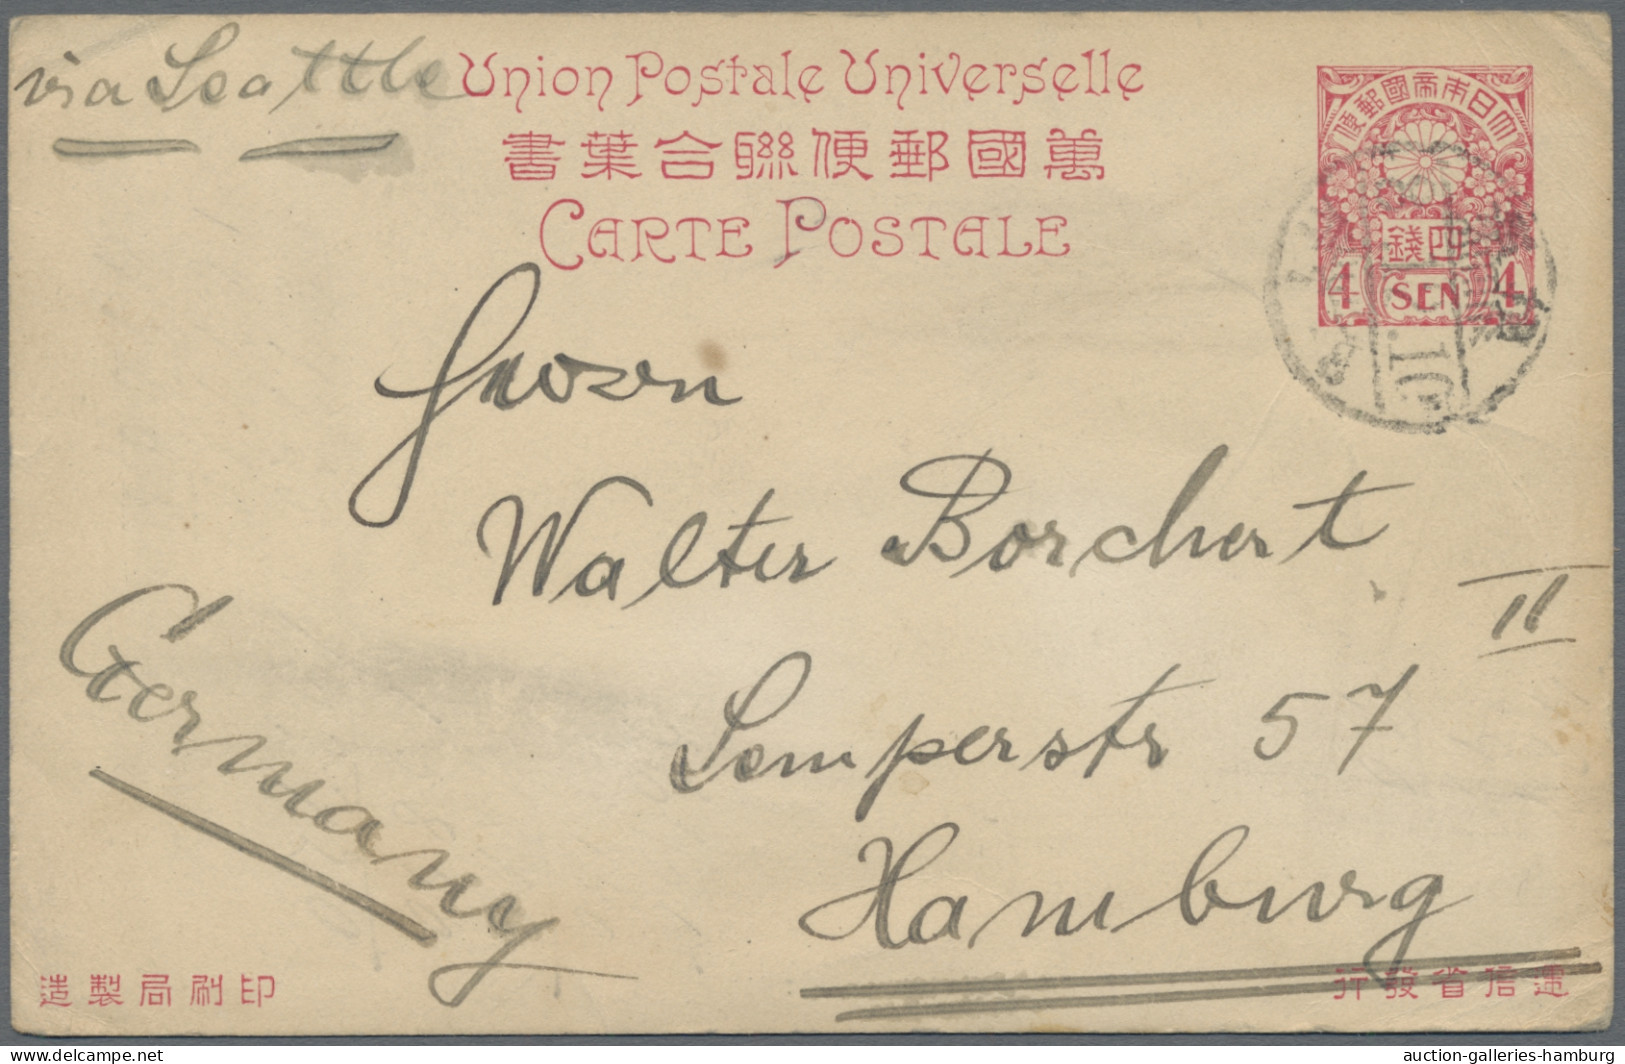 via Seattle
Union Postale Universelle
萬國郵便聯合葉書
CARTE POSTALE
大日本帝國郵便
四錢
4 SEN 4
Walter Borchert
II
Semperstr 57
Hamburg
Germany
印刷局製造
遞信省發行
www.delcampe.net
auction-galleries-hamburg